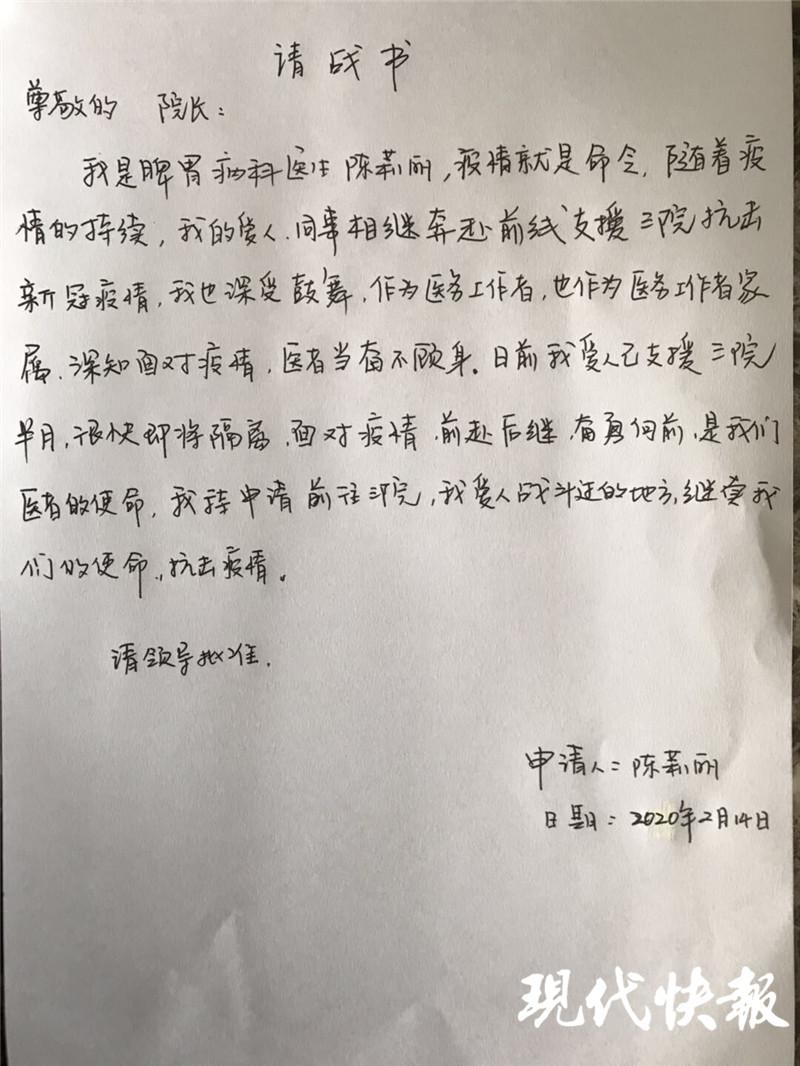 请战书
尊敬的 院长：
我是脾胃病科医生陈莉丽，疫情就是命令，随着疫
情的持续，我的爱人、同事相继奔赴前线支援三院抗击
新冠疫情，我也深受鼓舞，作为医务工作者，也作为医务工作者家
属，深知面对疫情，医者当奋不顾身。日前我爱人已支援三院
半月，很快即将隔离，面对疫情，前赴后继，奋勇向前，是我们
医者的使命，我特申请前往三院，我爱人战斗过的地方，继续我
们的使命，抗击疫情。
请领导批准。
申请人：陈莉丽
日期：2020年2月14日
现代快報